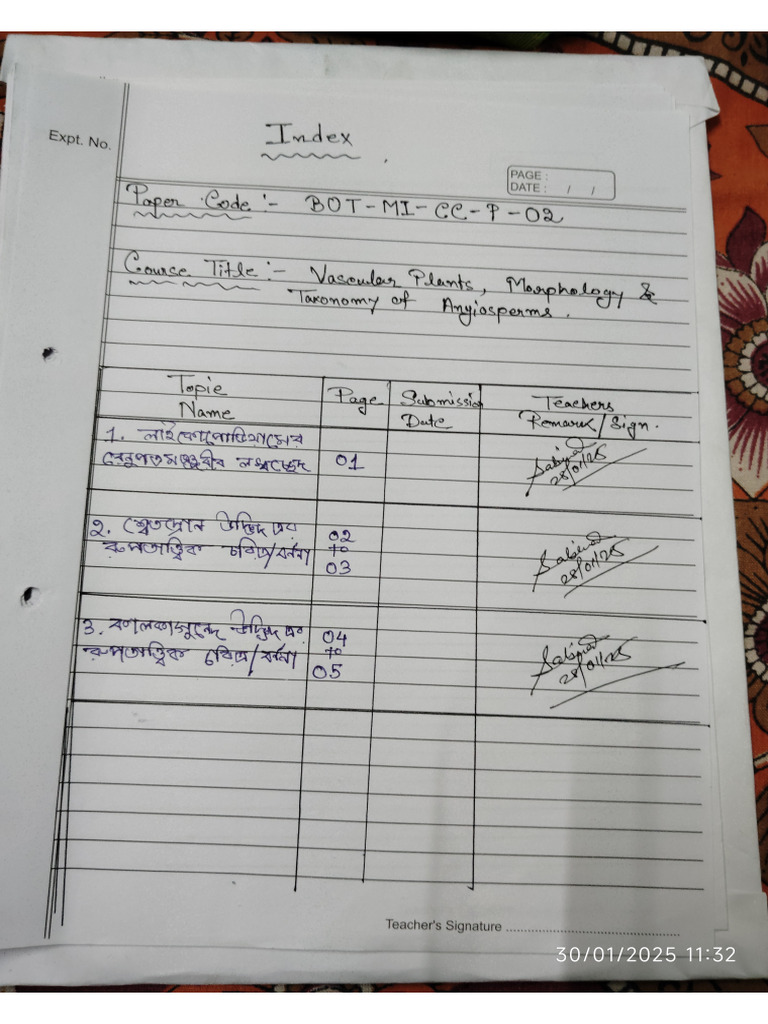 Index
Expt. No.
PAGE :
DATE : / /
Paper Code :- BOT-MI-CC-P-02
Course Title :- Vascular Plants, Morphology &
Taxonomy of Angiosperms.
Topic Name
Page
Submission Date
Teachers Remark/Sign.
1. লাইকোপোডিয়ামের
রেনুপত্রমঞ্জুরীর লম্বচ্ছেদ 01
28/01/25
2. শ্বেতদ্রোন উদ্ভিদ এর 02
রুপতাত্ত্বিক চরিত্র/বর্ননা to
03
28/01/25
3. কালকাসুন্দে উদ্ভিদ এর 04
রুপতাত্ত্বিক চরিত্র/বর্ননা to
05
28/01/25
Teacher's Signature
30/01/2025 11:32